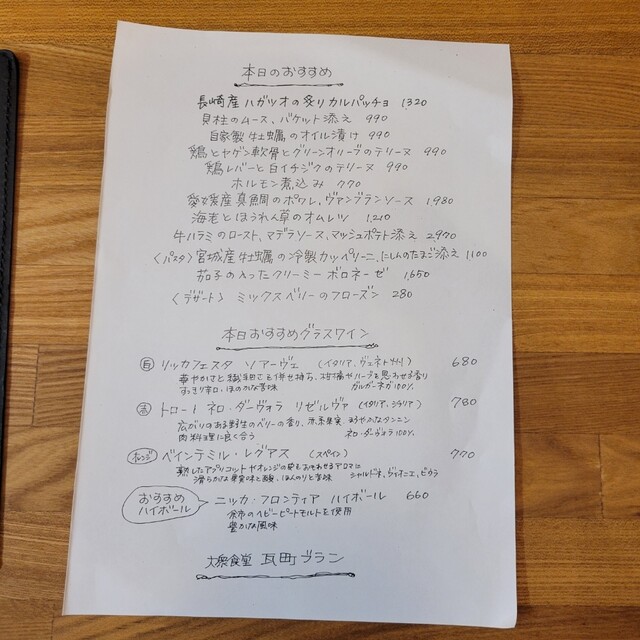 本日のおすすめ
長崎産ハガツオの炙りカルパッチョ 1320
貝柱のムース、バケット添え 990
自家製牡蠣のオイル漬け 990
鶏とヤゲン軟骨とグリーンオリーブのテリーヌ 990
鶏レバーと白イチジクのテリーヌ 990
ホルモン煮込み 770
愛媛産真鯛のポワレ、ヴァンブランソース 1,980
海老とほうれん草のオムレツ 1,210
牛ハラミのロースト、マデラソース、マッシュポテト添え 2970
〈パスタ〉宮城産牡蠣の冷製カッペリーニ、にしんのたまご添え 1100
茄子の入ったクリーミーボロネーゼ 1,650
〈デザート〉ミックスベリーのフローズン 280
本日おすすめグラスワイン
白 リッカフェスタ ソアーヴェ (イタリア、ヴェネト州) 680
華やかさと繊細さを併せ持ち、柑橘やハーブを思わせる香り
すっきり辛口、ほのかな苦味 ガルガーネガ100%
赤 トロート ネロ・ダーヴォラ リゼルヴァ (イタリア、シチリア) 780
広がりのある野生のベリーの香り、赤系果実、まろやかなタンニン
肉料理に良く合う ネロ・ダーヴォラ100%
オレンジ ベインテミル・レグアス (スペイン) 770
熟したアプリコットやオレンジの花をおもわせるアロマに
滑らかな果実味と酸、ほんのりと苦味 シャルドネ、ヴィオニエ、ビウラ
おすすめ
ハイボール
ニッカ・フロンティア ハイボール 660
余市のヘビーピートモルトを使用
豊かな風味
大衆食堂 瓦町ブラン